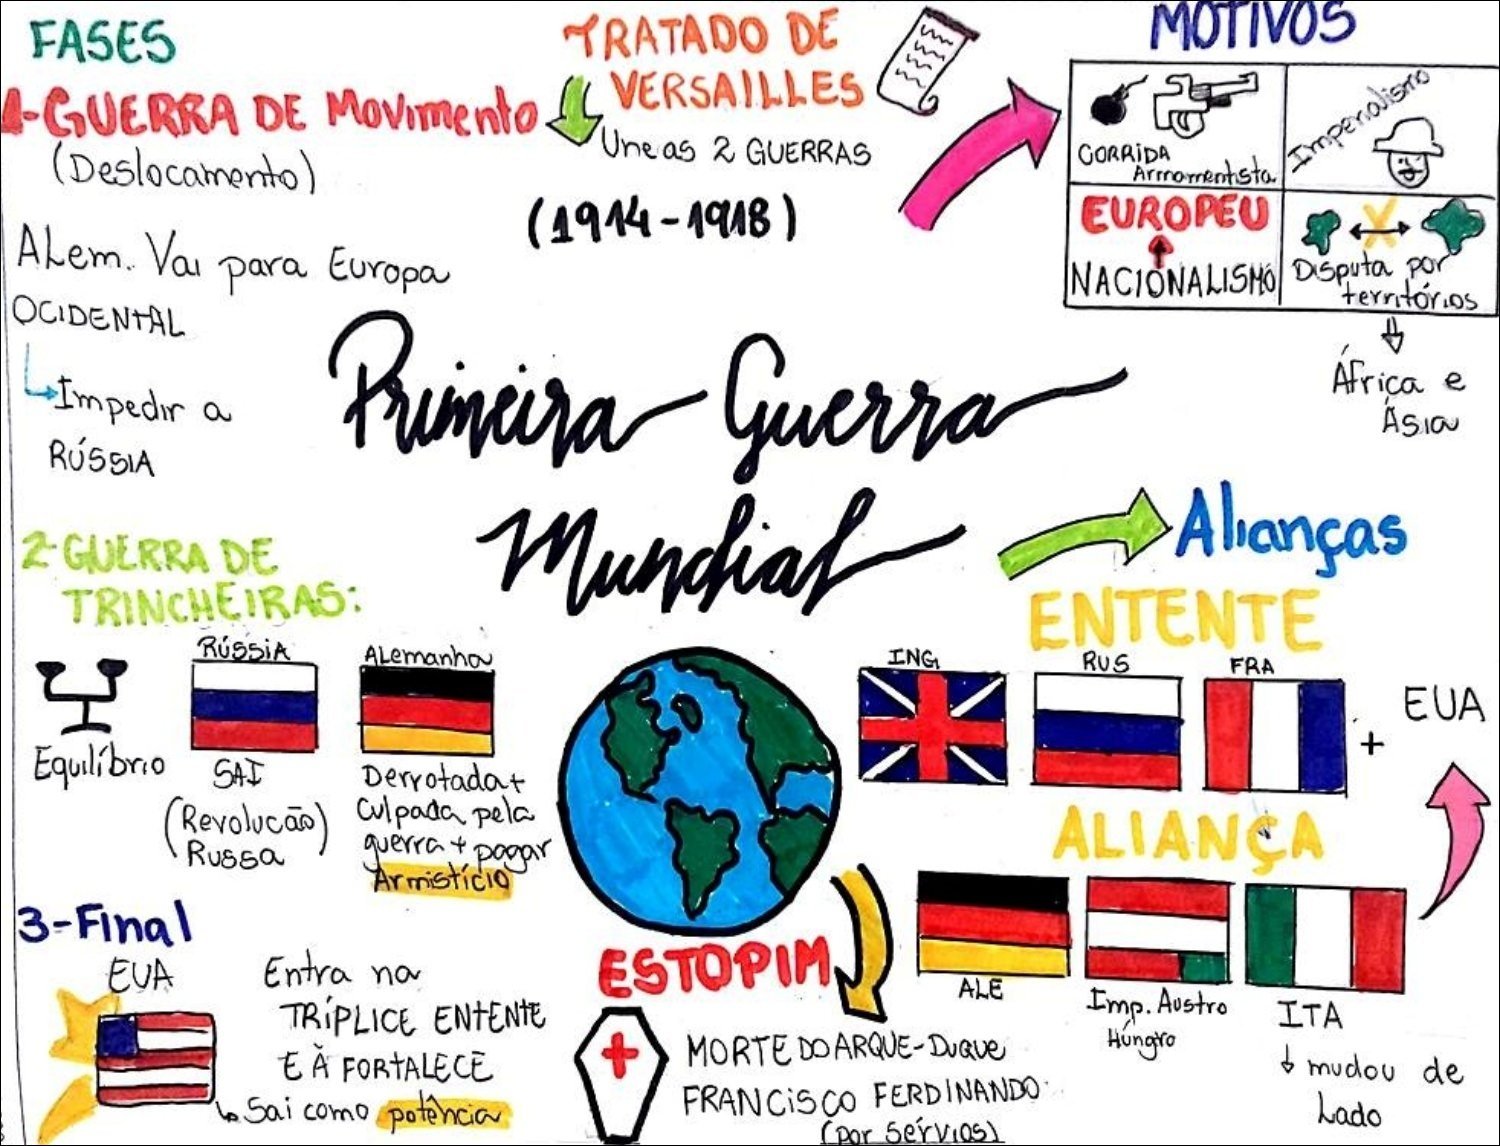 FASES
1-GUERRA DE Movimento
(Deslocamento)
ALem. Vai para Europa
OCIDENTAL
Impedir a
RÚSSIA
TRATADO DE
VERSAILLES
Une as 2 GUERRAS
(1914-1918)
MOTIVOS
CORRIDA
Armamentista
Imperialismo
EUROPEU
NACIONALISMO
Disputa por
territórios
África e
Ásia
Primeira Guerra
Mundial
2-GUERRA DE
TRINCHEIRAS:
Equilíbrio
RÚSSiA
SAI
(Revolucão)
Russa
ALemanha
Derrotada +
Culpada pela
guerra + pagar
Armistício
3-Final
EUA
Entra na
TRÍPLICE ENTENTE
E À FORTALECE
Sai como potência
Alianças
ENTENTE
ING
RUS
FRA
+
EUA
ALIANÇA
ALE
Imp. Austro
Húngro
ITA
mudou de
Lado
ESTOPIM
MORTE DO ARQUE-DuQue
FRANCiSCO FERDINANDO.
(por Sérvios)